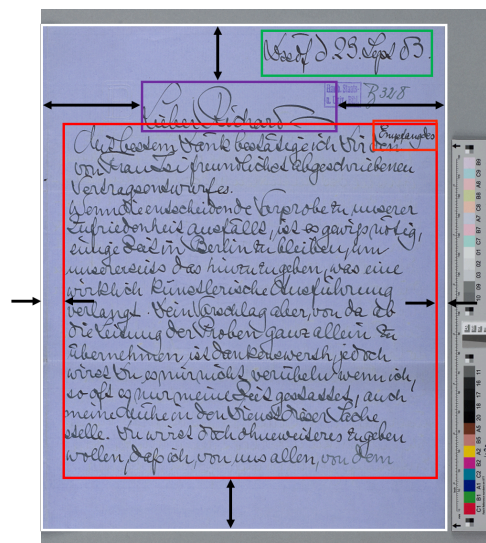 d. 23. Sept 03.
B 328
Lieber Richard
Empfang des
Mit bestem Dank bestätige ich Dir den
von Frau freundlichst abgeschriebenen
Vertragsentwurfes.
Wenn die entscheidende Vorprobe zu unserer
Zufriedenheit ausfällt, ist es nötig,
einige Zeit in Berlin zu bleiben, um
unsererseits das hinzuzugeben, was eine
wirklich künstlerische Ausführung
verlangt. Dein Vorschlag aber, von da ab
die Leitung der Proben ganz allein zu
übernehmen, ist dankenswerth, jedoch
wirst Du es mir nicht verübeln, wenn ich,
so oft es nur meine Zeit gestattet, auch
meine Mühe in den Dienst dieser Sache
stelle. Du wirst doch ohne weiteres zugeben
wollen, daß ich, von uns allen, von dem